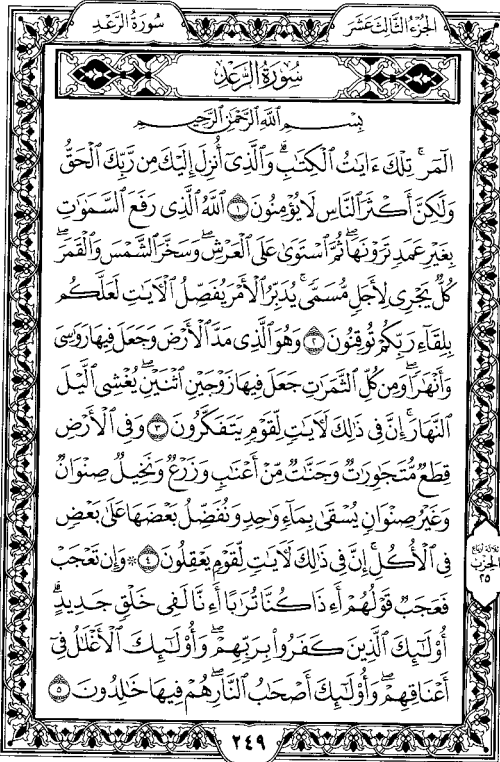 الجزء الثالث عشر
سورة الرعد
سُورَةُ الرَّعْدِ
بِسْمِ ٱللَّهِ ٱلرَّحْمَٰنِ ٱلرَّحِيمِ
الٓمٓر ۚ تِلْكَ ءَايَٰتُ ٱلْكِتَٰبِ ۗ وَٱلَّذِىٓ أُنزِلَ إِلَيْكَ مِن رَّبِّكَ ٱلْحَقُّ
وَلَٰكِنَّ أَكْثَرَ ٱلنَّاسِ لَا يُؤْمِنُونَ ١ ٱللَّهُ ٱلَّذِى رَفَعَ ٱلسَّمَٰوَٰتِ
بِغَيْرِ عَمَدٍ تَرَوْنَهَا ۖ ثُمَّ ٱسْتَوَىٰ عَلَى ٱلْعَرْشِ ۖ وَسَخَّرَ ٱلشَّمْسَ وَٱلْقَمَرَ ۖ
كُلٌّ يَجْرِى لِأَجَلٍ مُّسَمًّى ۚ يُدَبِّرُ ٱلْأَمْرَ يُفَصِّلُ ٱلْءَايَٰتِ لَعَلَّكُم
بِلِقَآءِ رَبِّكُمْ تُوقِنُونَ ٢ وَهُوَ ٱلَّذِى مَدَّ ٱلْأَرْضَ وَجَعَلَ فِيهَا رَوَٰسِىَ
وَأَنْهَٰرًا ۖ وَمِن كُلِّ ٱلثَّمَرَٰتِ جَعَلَ فِيهَا زَوْجَيْنِ ٱثْنَيْنِ ۖ يُغْشِى ٱلَّيْلَ
ٱلنَّهَارَ ۚ إِنَّ فِى ذَٰلِكَ لَءَايَٰتٍ لِّقَوْمٍ يَتَفَكَّرُونَ ٣ وَفِى ٱلْأَرْضِ
قِطَعٌ مُّتَجَٰوِرَٰتٌ وَجَنَّٰتٌ مِّنْ أَعْنَٰبٍ وَزَرْعٌ وَنَخِيلٌ صِنْوَانٌ
وَغَيْرُ صِنْوَانٍ يُسْقَىٰ بِمَآءٍ وَٰحِدٍ وَنُفَضِّلُ بَعْضَهَا عَلَىٰ بَعْضٍ
فِى ٱلْأُكُلِ ۚ إِنَّ فِى ذَٰلِكَ لَءَايَٰتٍ لِّقَوْمٍ يَعْقِلُونَ ٤ ۞ وَإِن تَعْجَبْ
فَعَجَبٌ قَوْلُهُمْ أَءِذَا كُنَّا تُرَٰبًا أَءِنَّا لَفِى خَلْقٍ جَدِيدٍ ۗ
أُو۟لَٰٓئِكَ ٱلَّذِينَ كَفَرُوا۟ بِرَبِّهِمْ ۖ وَأُو۟لَٰٓئِكَ ٱلْأَغْلَٰلُ فِىٓ
أَعْنَاقِهِمْ ۖ وَأُو۟لَٰٓئِكَ أَصْحَٰبُ ٱلنَّارِ ۖ هُمْ فِيهَا خَٰلِدُونَ ٥
ثلاثة أرباع
الحزب
٢٥
٢٤٩